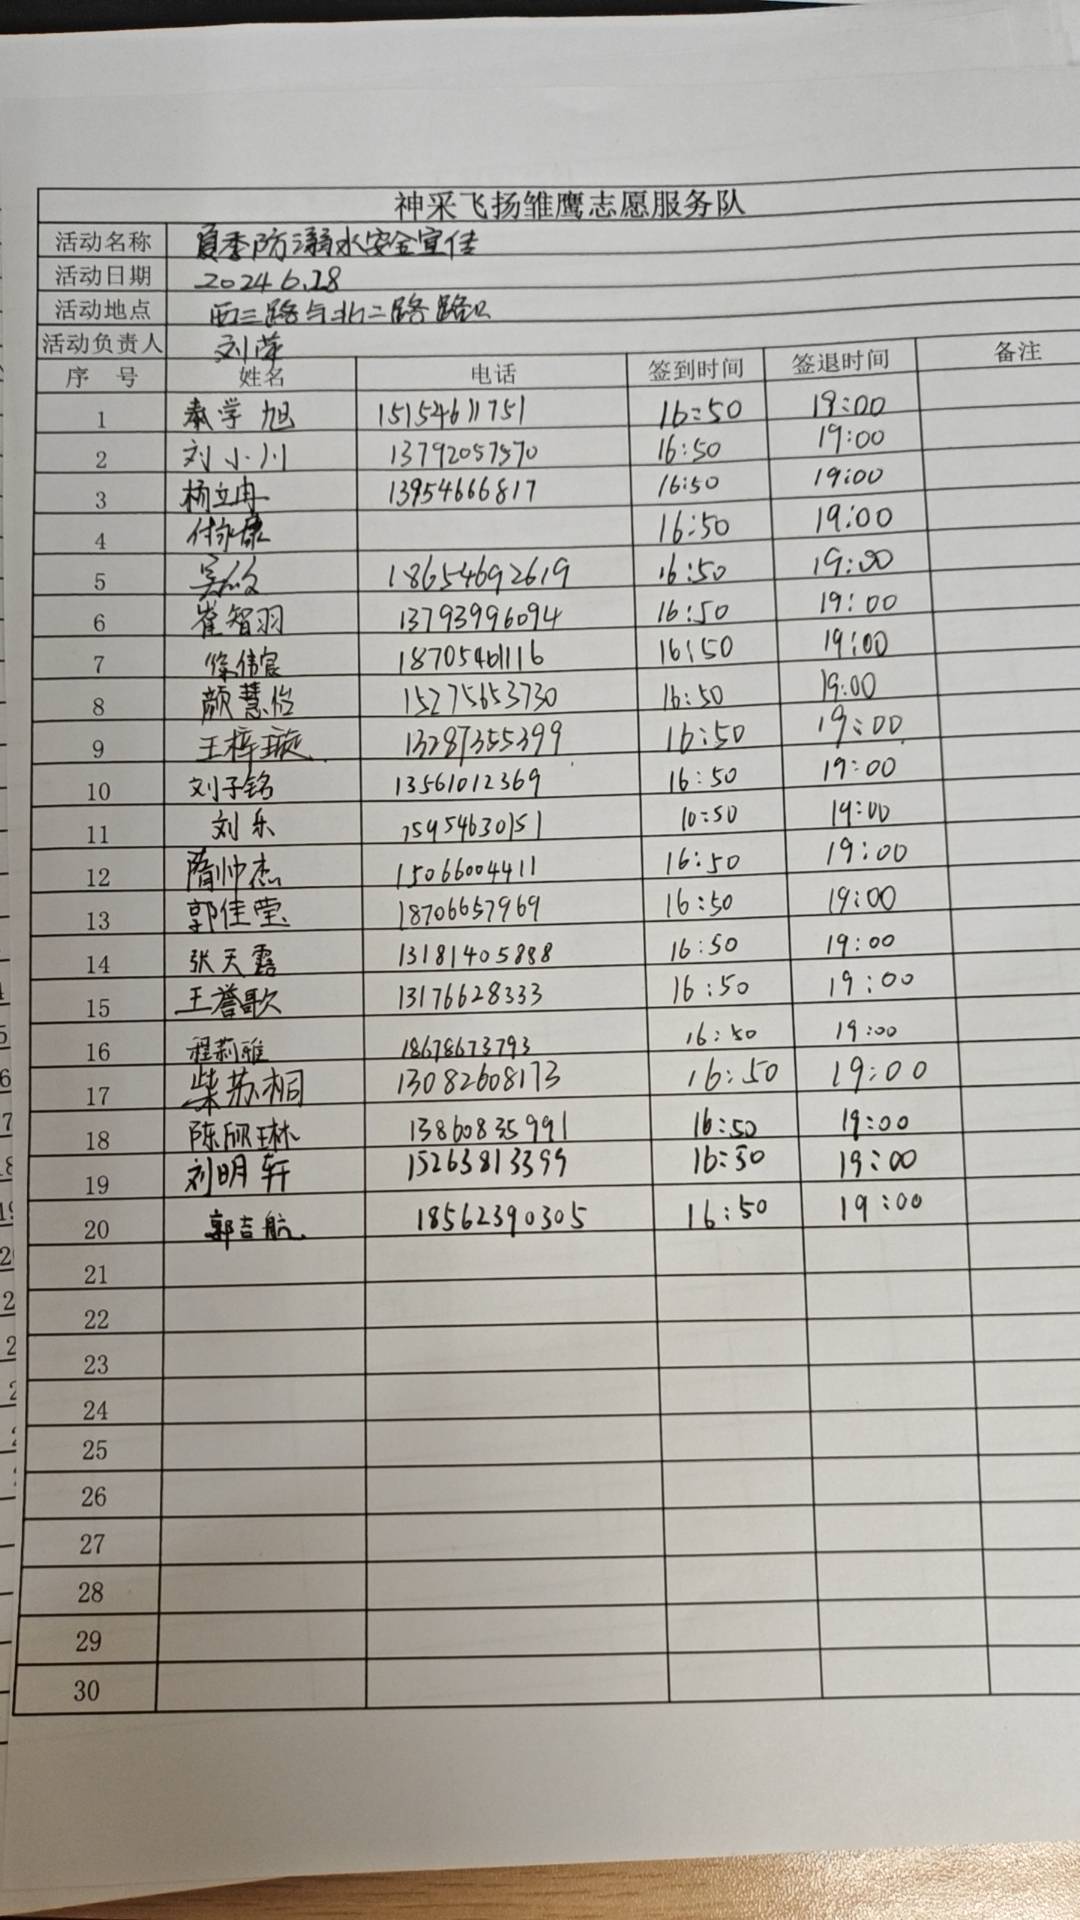 神采飞扬雏鹰志愿服务队
活动名称 夏季防溺水安全宣传
活动日期 2024 6.28
活动地点 西三路与北二路路口
活动负责人 刘萍
序 号 姓名 电话 签到时间 签退时间 备注
1 秦学旭 15154611751 16:50 19:00
2 刘小川 13792057570 16:50 19:00
3 杨立冉 13954666817 16:50 19:00
4 付永康 16:50 19:00
5 18654692619 16:50 19:00
6 崔智羽 13793996094 16:50 19:00
7 徐伟宸 18705461116 16:50 19:00
8 颜慧怡 15275653730 16:50 19:00
9 王梓璇 13287355399 16:50 19:00
10 刘子铭 13561012369 16:50 19:00
11 刘乐 15954630151 16:50 19:00
12 隋帅杰 15066004411 16:50 19:00
13 郭佳莹 18706657969 16:50 19:00
14 张天露 13181405888 16:50 19:00
15 王誉歌 13176628333 16:50 19:00
16 程莉雅 18678673793 16:50 19:00
17 柴苏桐 13082608173 16:50 19:00
18 陈欣琳 13860835991 16:50 19:00
19 刘明轩 15263813399 16:50 19:00
20 郭吉航 18562390305 16:50 19:00
21
22
23
24
25
26
27
28
29
30